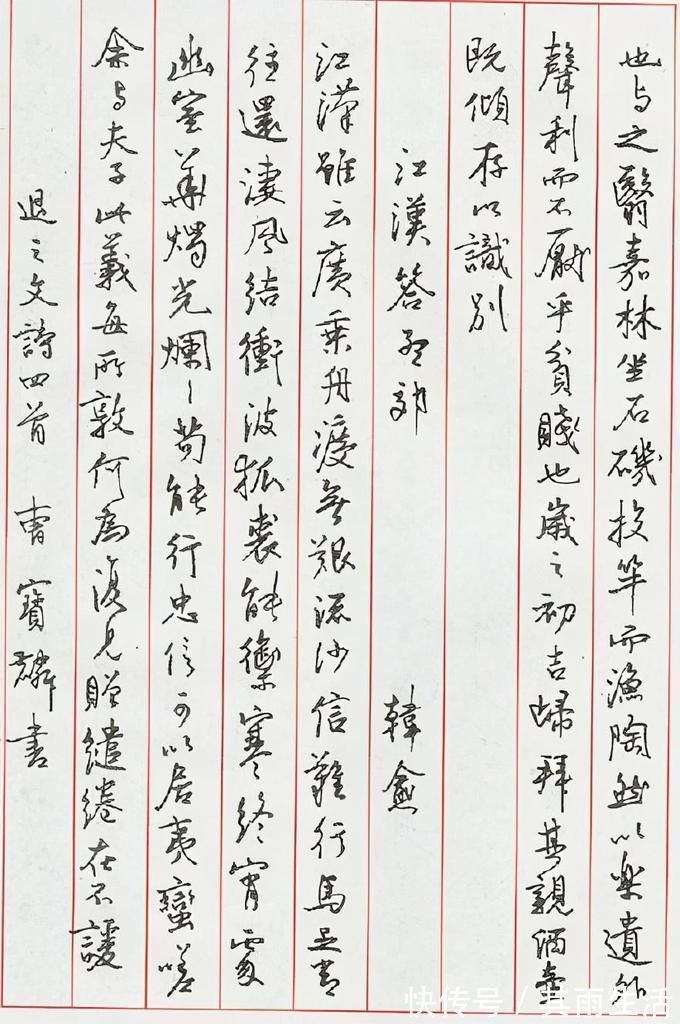 也与之翳嘉林坐石磯投竿而漁陶然以樂遺外
聲利而不厭乎貧賤也歲之初吉歸拜其親酒壺
既傾存以識別
江漢答孟郊 韓愈
江漢雖云廣乘舟渡無艱流沙信難行馬足常
往還淒風結衝波狐裘能禦寒終宵處
幽室華燭光爛〻苟能行忠信可以居夷蠻嗟
余与夫子此義每所敦何為復見贈繾綣在不諼
退之文詩四首 曹寶麟書
快传号 / 其雨生活